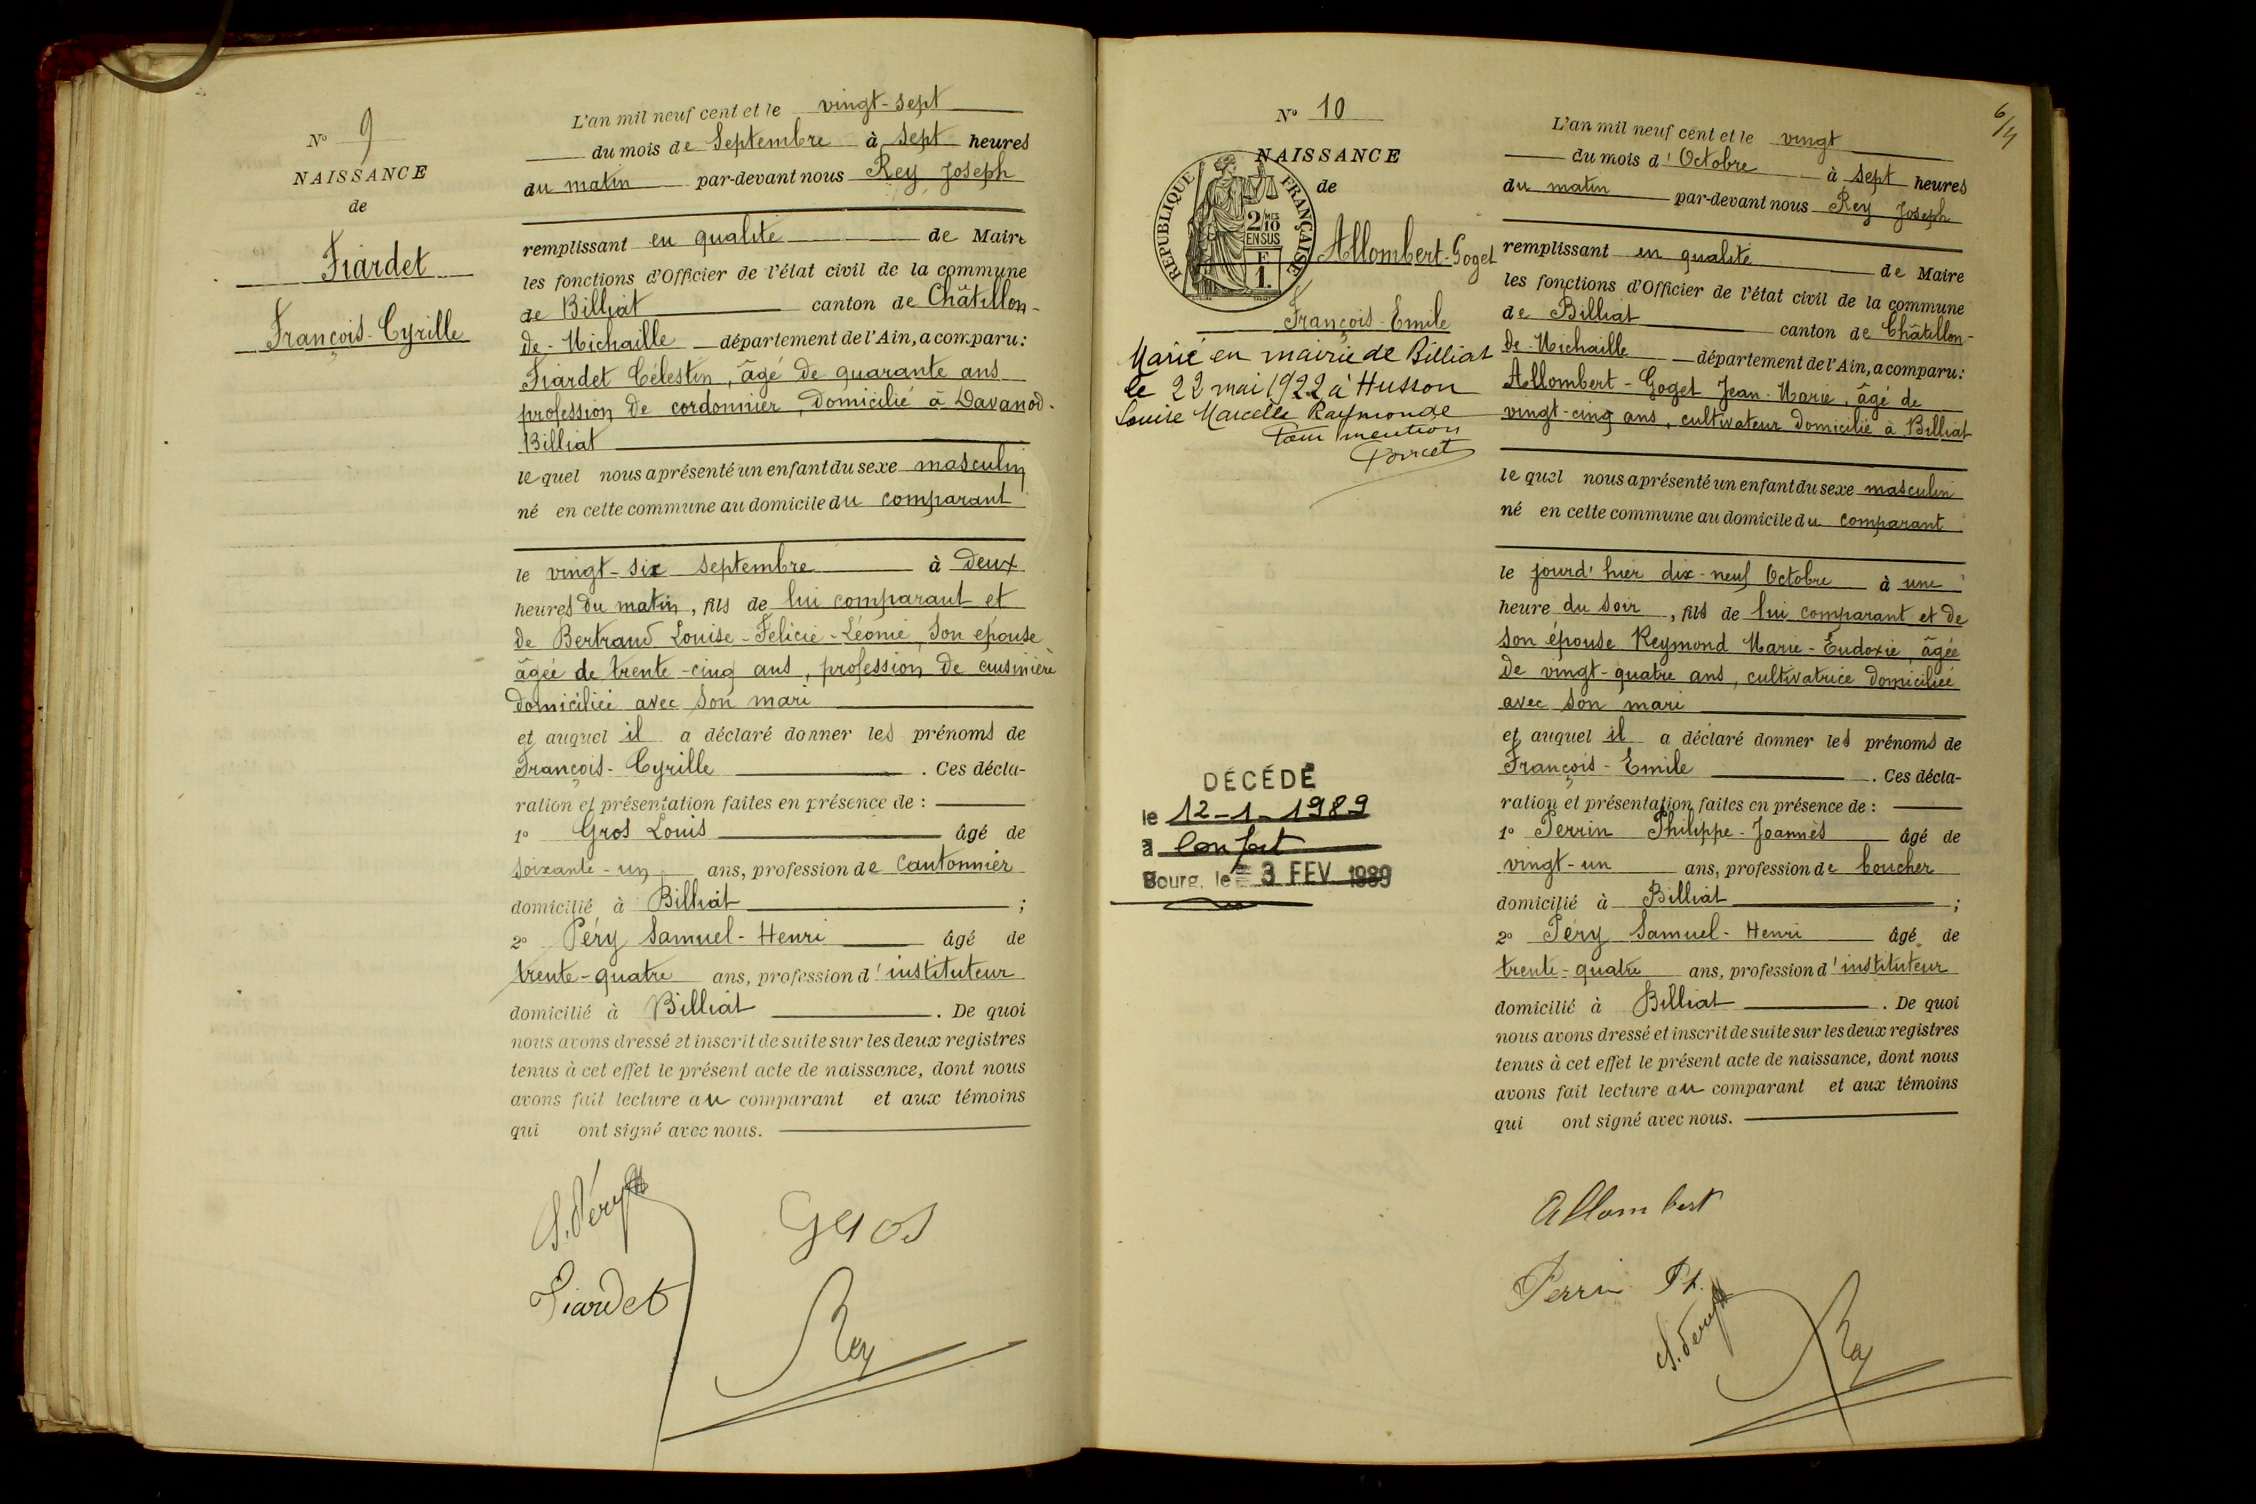 N° 9
NAISSANCE
de
Fiardet
François-Cyrille
L'an mil neuf cent et le vingt-sept
du mois de Septembre à sept heures
du matin par-devant nous Rey Joseph
remplissant en qualité de Maire
les fonctions d'Officier de l'état civil de la commune
de Billiat canton de Châtillon-
de-Michaille département de l'Ain, a comparu:
Fiardet Célestin, âgé de quarante ans
profession de cordonnier, domicilié à Davanod-
Billiat
le quel nous a présenté un enfant du sexe masculin
né en cette commune au domicile du comparant
le vingt-six septembre à deux
heures du matin, fils de lui comparant et
de Bertrand Louise-Félicie-Léonie, son épouse
âgée de trente-cinq ans, profession de cuisinière
domiciliée avec son mari
et auquel il a déclaré donner les prénoms de
François-Cyrille . Ces décla-
ration et présentation faites en présence de :
1° Gros Louis âgé de
soixante-un ans, profession de cantonnier
domicilié à Billiat ;
2° Péry Samuel-Henri âgé de
trente-quatre ans, profession d'instituteur
domicilié à Billiat . De quoi
nous avons dressé et inscrit de suite sur les deux registres
tenus à cet effet le présent acte de naissance, dont nous
avons fait lecture au comparant et aux témoins
qui ont signé avec nous.
S. Péry
Gros
Fiardet
Rey
6/4
N° 10
NAISSANCE
de
RÉPUBLIQUE FRANÇAISE
2/10 MES
EN SUS
F
1.
Allombert-Goget
François-Emile
Marié en mairie de Billiat
le 22 mai 1922 à Husson
Louise Marcelle Raymonde
Pour mention
DÉCÉDÉ
le 12-1-1989
à Confort
Bourg, le 3 FEV 1989
L'an mil neuf cent et le vingt
du mois d'Octobre à sept heures
du matin par-devant nous Rey Joseph
remplissant en qualité de Maire
les fonctions d'Officier de l'état civil de la commune
de Billiat canton de Châtillon-
de-Michaille département de l'Ain, a comparu:
Allombert-Goget Jean-Marie, âgé de
vingt-cinq ans, cultivateur domicilié à Billiat
le quel nous a présenté un enfant du sexe masculin
né en cette commune au domicile du comparant
le jourd'hier dix-neuf Octobre à une
heure du soir, fils de lui comparant et de
son épouse Reymond Marie-Eudoxie âgée
de vingt-quatre ans, cultivatrice domiciliée
avec son mari
et auquel il a déclaré donner les prénoms de
François-Emile . Ces décla-
ration et présentation faites en présence de :
1° Perrin Philippe-Joannès âgé de
vingt-un ans, profession de boucher
domicilié à Billiat ;
2° Péry Samuel-Henri âgé de
trente-quatre ans, profession d'instituteur
domicilié à Billiat . De quoi
nous avons dressé et inscrit de suite sur les deux registres
tenus à cet effet le présent acte de naissance, dont nous
avons fait lecture au comparant et aux témoins
qui ont signé avec nous.
Allombert
Perrin Ph.
S. Péry
Rey